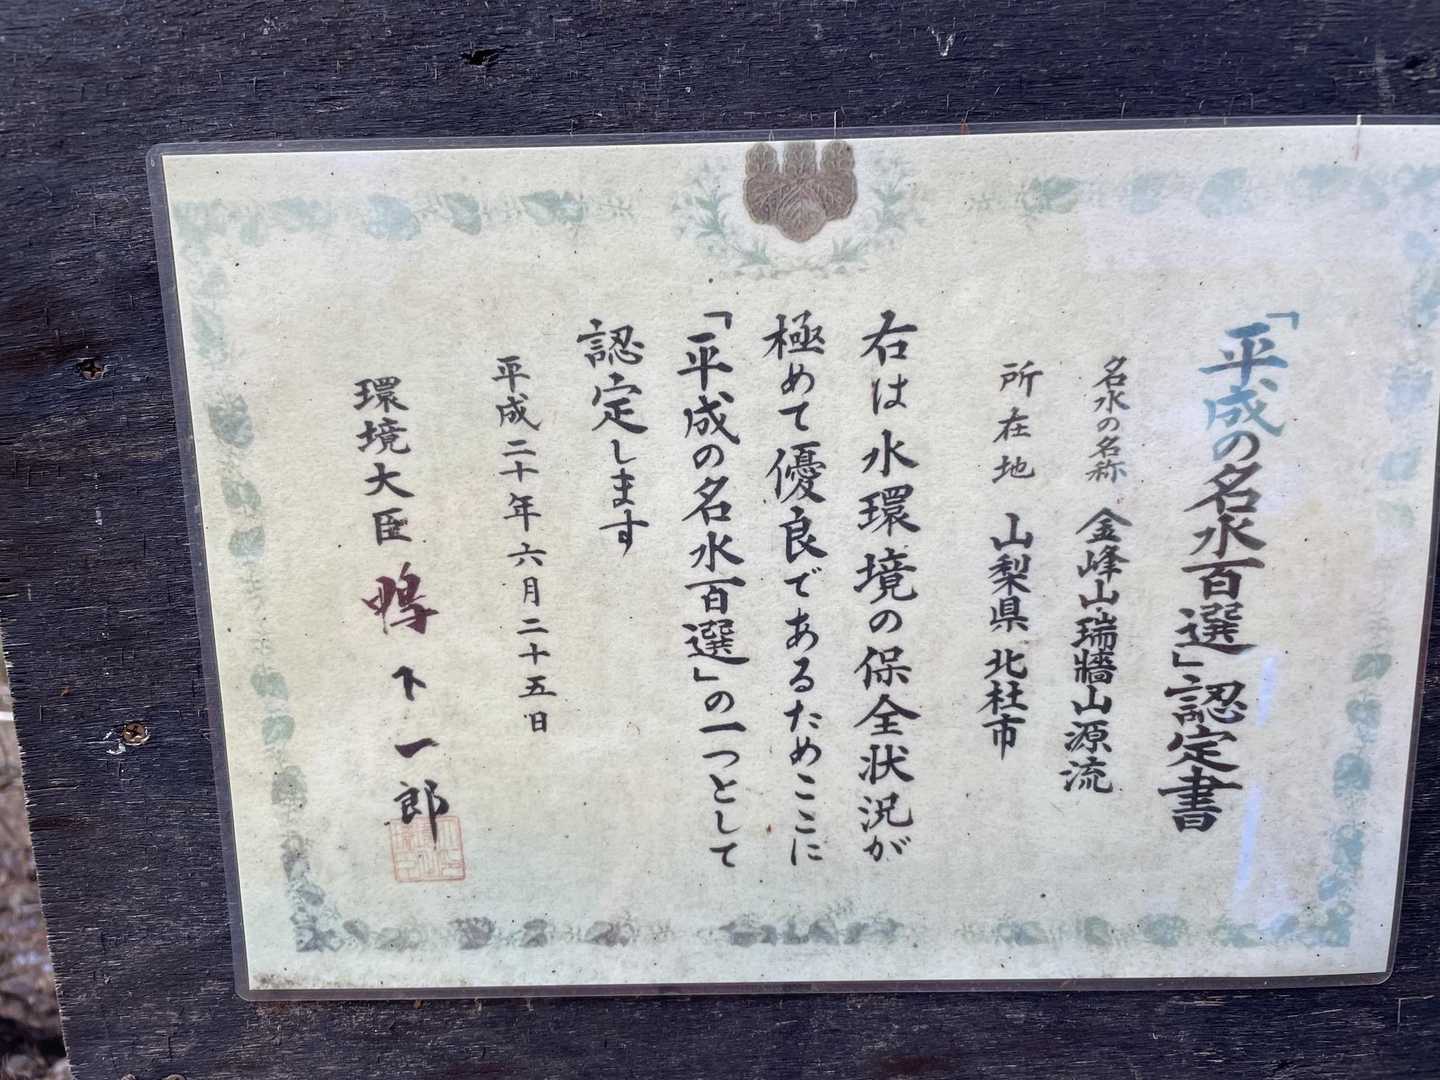 「平成の名水百選」認定書
名水の名称 金峰山・瑞牆山源流
所在地 山梨県北杜市
右は水環境の保全状況が
極めて優良であるためここに
「平成の名水百選」の一つとして
認定します
平成二十年六月二十五日
環境大臣 鴨下一郎